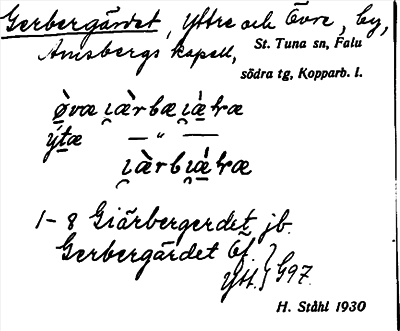 Gerbergärdet, Yttre och Övre, by,
Amsbergs kapell, St. Tuna sn, Falu
södra tg, Kopparb. l.
ø̀væ ı̯ὰrbæ ı̯ὰ́træ
ýtæ — „ —
ı̯ὰrbı̯ὰ́træ
1-8 Giärbergerdet jb.
Gerbergärdet Öf. } G97.
Ytt.
H. Ståhl 1930